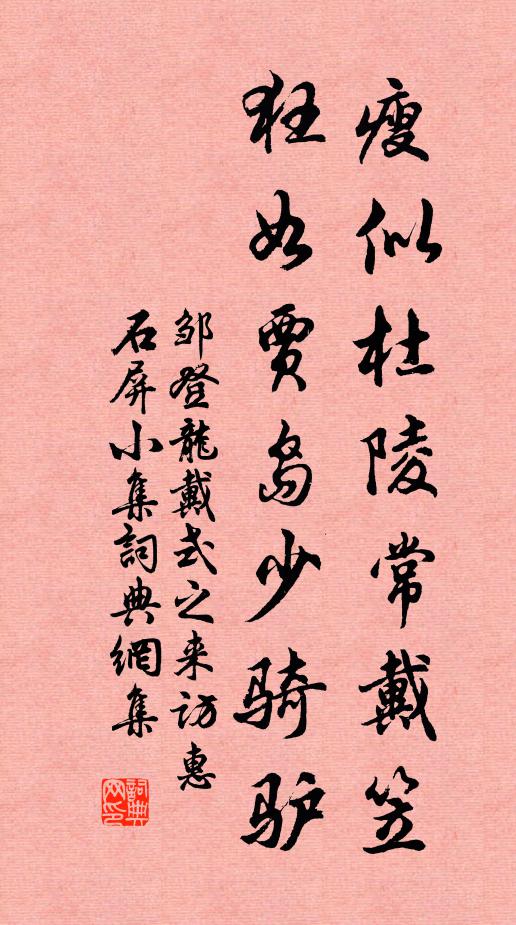 瘦似杜陵常戴笠
狂如贾岛少骑驴
邹登龍戴式之来访惠
石屏小集詞典網集
詞典
网印